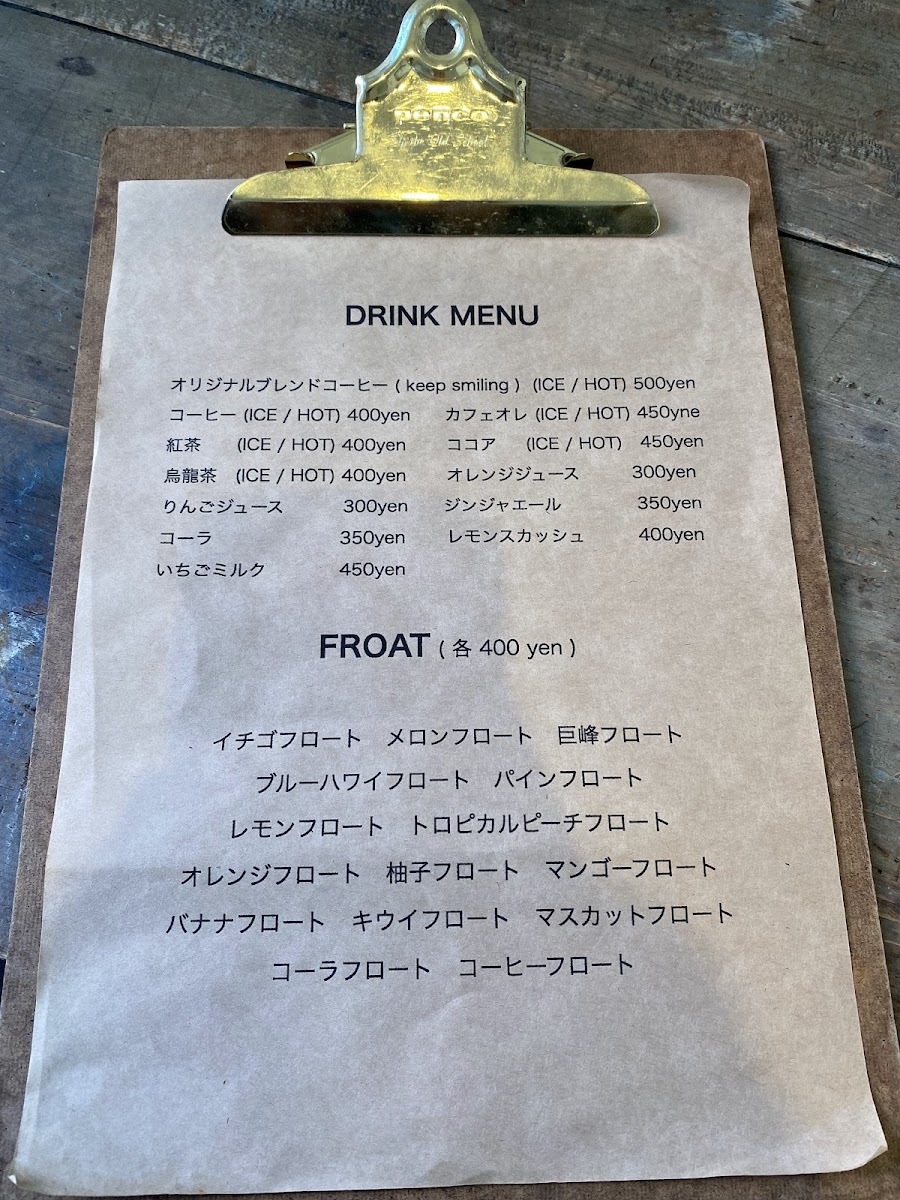 penco
Old School
DRINK MENU
オリジナルブレンドコーヒー ( keep smiling ) (ICE / HOT) 500yen
コーヒー (ICE / HOT) 400yen カフェオレ (ICE / HOT) 450yne
紅茶 (ICE / HOT) 400yen ココア (ICE / HOT) 450yen
烏龍茶 (ICE / HOT) 400yen オレンジジュース 300yen
りんごジュース 300yen ジンジャエール 350yen
コーラ 350yen レモンスカッシュ 400yen
いちごミルク 450yen
FROAT ( 各 400 yen )
イチゴフロート メロンフロート 巨峰フロート
ブルーハワイフロート パインフロート
レモンフロート トロピカルピーチフロート
オレンジフロート 柚子フロート マンゴーフロート
バナナフロート キウイフロート マスカットフロート
コーラフロート コーヒーフロート